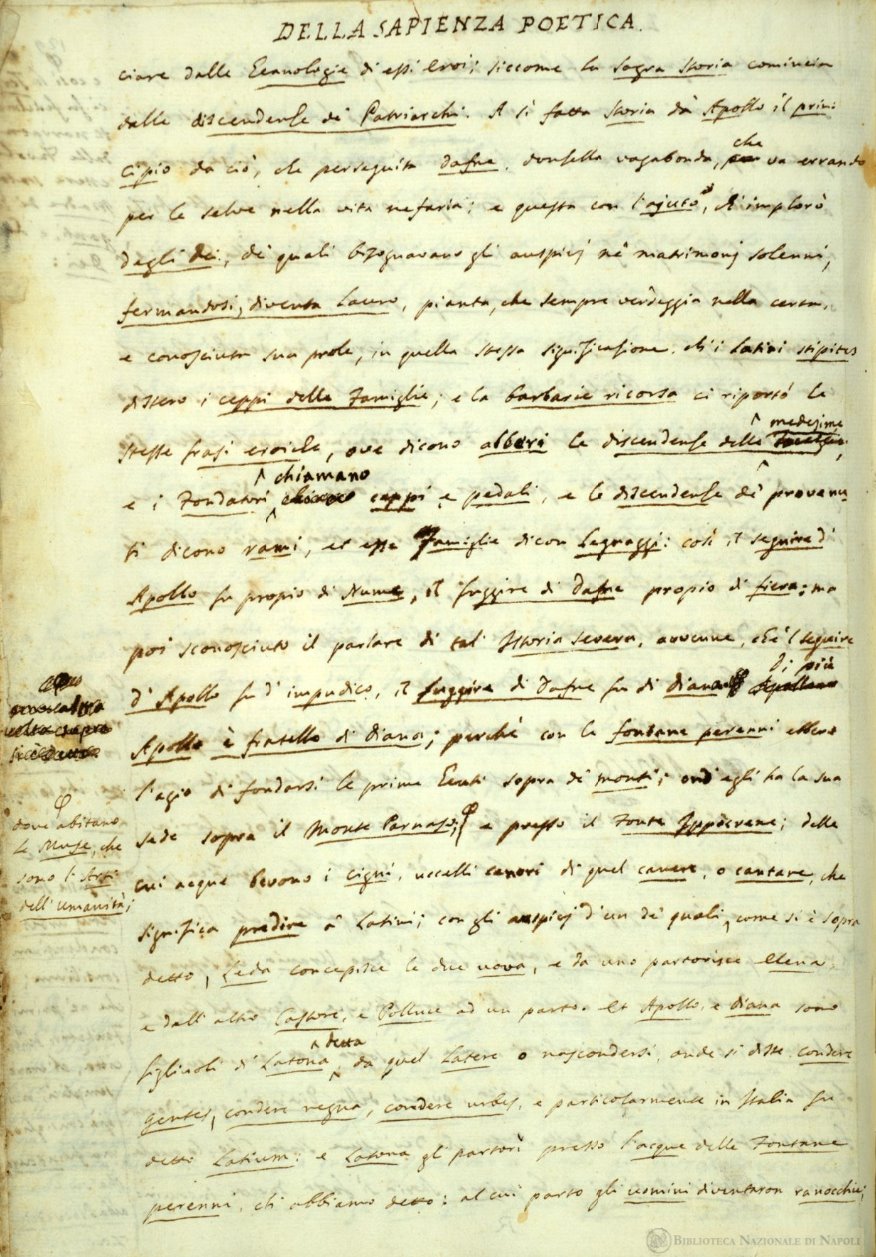 DELLA SAPIENZA POETICA.
ciare dalle Genealogie di essi Eroi; siccome la Sagra Storia comincia
dalle discendenze de' Patriarchi. A sì fatta Storia dà Apollo il prin-
cipio da ciò, che perseguita Dafne, donzella vagabonda, che va errando
per le selve nella vita nefaria; e questa con l'ajuto, ch' implorò
degli dei, de' quali bisognavano gli auspicj ne' matrimonj solenni,
fermandosi, diventa Lauro, pianta, che sempre verdeggia nella certa,
e conosciuta sua prole, in quella stessa significazione, ch' i Latini stipites
dissero i ceppi delle Famiglie; e la barbarie ricorsa ci riportò le
stesse frasi eroiche, ove dicono alberi le discendenze delle medesime,
e i Fondatori chiamano ceppi, e pedali, e le discendenze de' provenu-
ti dicono rami, et esse Famiglie dicon Legnaggi: così il seguire d'
Apollo fu propio di Nume, il fuggire di Dafne propio di fiera; ma
poi sconosciuto il parlare di tal' Istoria severa, avvenne, che 'l seguire
d' Apollo fu d' impudico, il fuggire di Dafne fu di Diana. Di più
Apollo è fratello di Diana; perchè con le fontane perenni ebbero
l'agio di fondarsi le prime Genti sopra de' monti; ond' egli ha la sua
sede sopra il Monte Parnaso, φ e presso il Fonte Ippocrene; delle
φ
dove abitano
le Muse, che
sono l' Arti
dell' umanità;
cui acque bevono i cigni, uccelli canori di quel canere, o cantare, che
significa predire a' Latini; con gli auspicj d'un de' quali, come si è sopra
detto, Leda concepisce le due uova, e da uno partorisce Elena,
e dall' altro Castore, e Polluce ad un parto. Et Apollo, e Diana sono
figliuoli di Latona detta da quel latere o nascondersi, onde si disse condere
gentes, condere regna, condere urbes, e particolarmente in Italia fu
detto Latium: e Latona gli partorì presso l'acque delle Fontane
perenni, ch' abbiamo detto: al cui parto gli uomini diventaron ranocchie;
BIBLIOTECA NAZIONALE DI NAPOLI